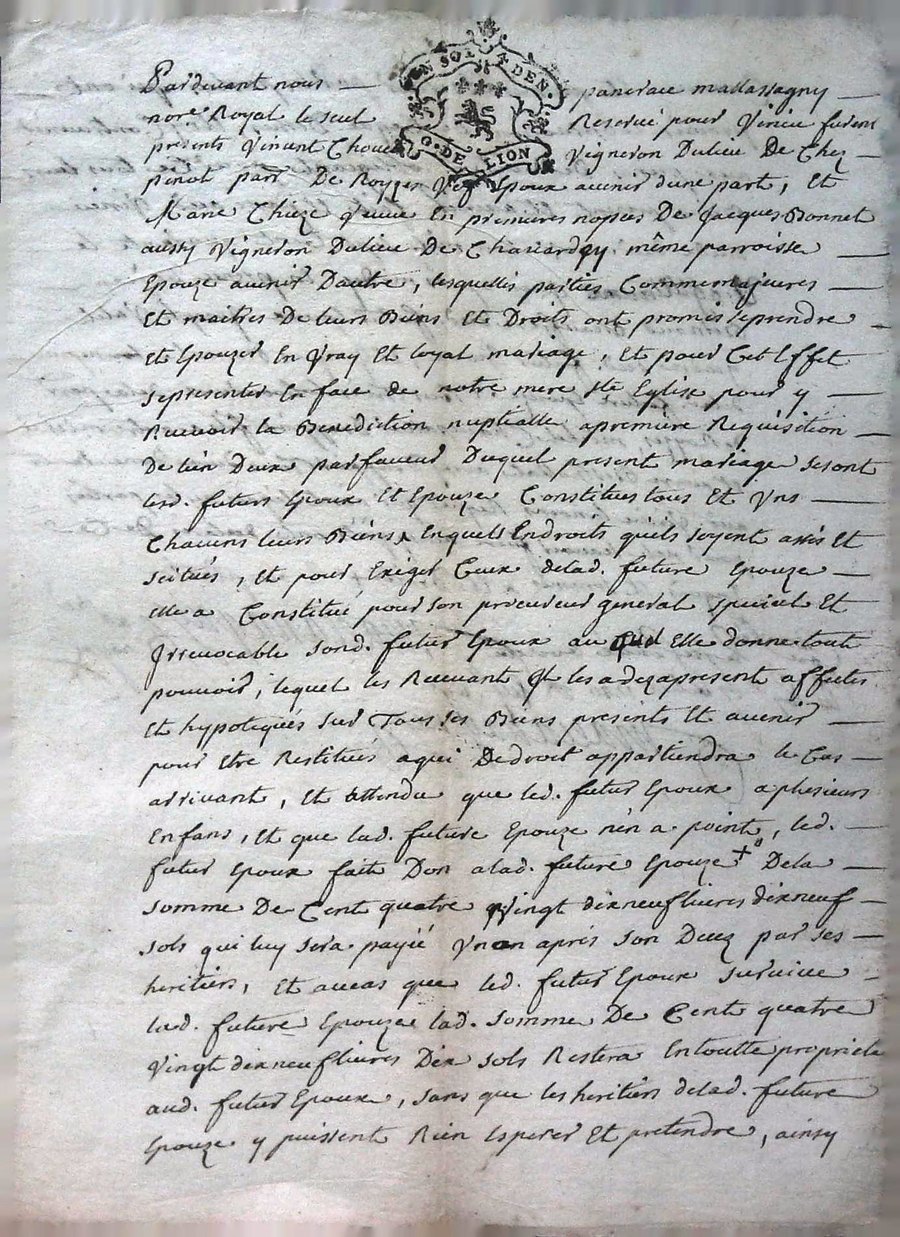 UN SOL 4 DEN.
G. DE LION
Pardevant nous — pancrace mallassagny —
nore Royal le seul Reservé pour Vinieu furent
presents Vincent Vigneron Dulieu De Chez —
pinot parr De Royzer Vef Epoux avenir dune part, Et
Marie Chieze Veuve En premieres nopces De Jacques Bonnet
aussy Vigneron Dulieu De même parroisse —
Epouze avenir Dautre, lesquelles parties Commemajeures —
Et maitres De leurs Biens Et Droits ont promis seprendre —
Et Epouzer En Vray Et loyal mariage, Et pour Cet Effet
sepresenter En face de notre mere Ste Eglise pour y —
Recevoir la Benediction nuptialle apremière Requisition —
De lún Deux parfaveur Duquel present mariage sesont
lesd. futurs Epoux Et Epouze Constitues tous Et Vns —
Chacuns leurs Biens Enquels Endroits quils soyent assis Et
scitués, Et pour Exiger Ceux delad. future Epouze —
Elle a Constitué pour son procureur general special Et
Irrevocable sond. futur Epoux au quel Elle donne tout
pouvoir, lequel les Recevant Et les adezapresent affectes
Et hypotequés sur Tous ses Biens presents Et avenir —
pour Etre Restitués aqui Dedroit appartiendra le Cas —
arrivant, Et attendu que led. futur Epoux aplusieurs
Enfans, Et que lad. future Epouze nén a point, led. —
futur Epoux fait Don alad. future Epouze + Dela —
somme De Cent quatre Vingt dixneuf livres dixneuf —
sols qui luy sera payié Vn an aprés son Decez par ses —
heritiers, Et aucas que led. futur Epoux survive —
lad. future Epouze lad. somme De Cent quatre
Vingt dixneuf livres Dix sols Restera Entoutte propriete
aud. futur Epoux, sans que les heritiers delad. future
Epouze y puissent Rien Esperer Et pretendre, ainsy